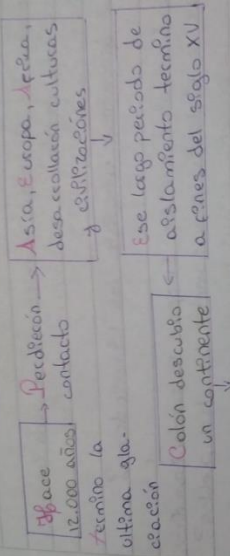 Hace
12.000 años
termino la
ultima gla-
ciación
Perdieron
contacto
Asia, Europa, África,
desarrollarón culturas
y civilizaciónes
Ese largo periodo de
aislamiento termino
a fines del siglo XV
Colón descubrio
un continente